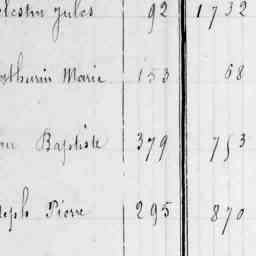 Jules 92 1732
Marie 153 68
Baptiste 379 753
Pierre 295 870